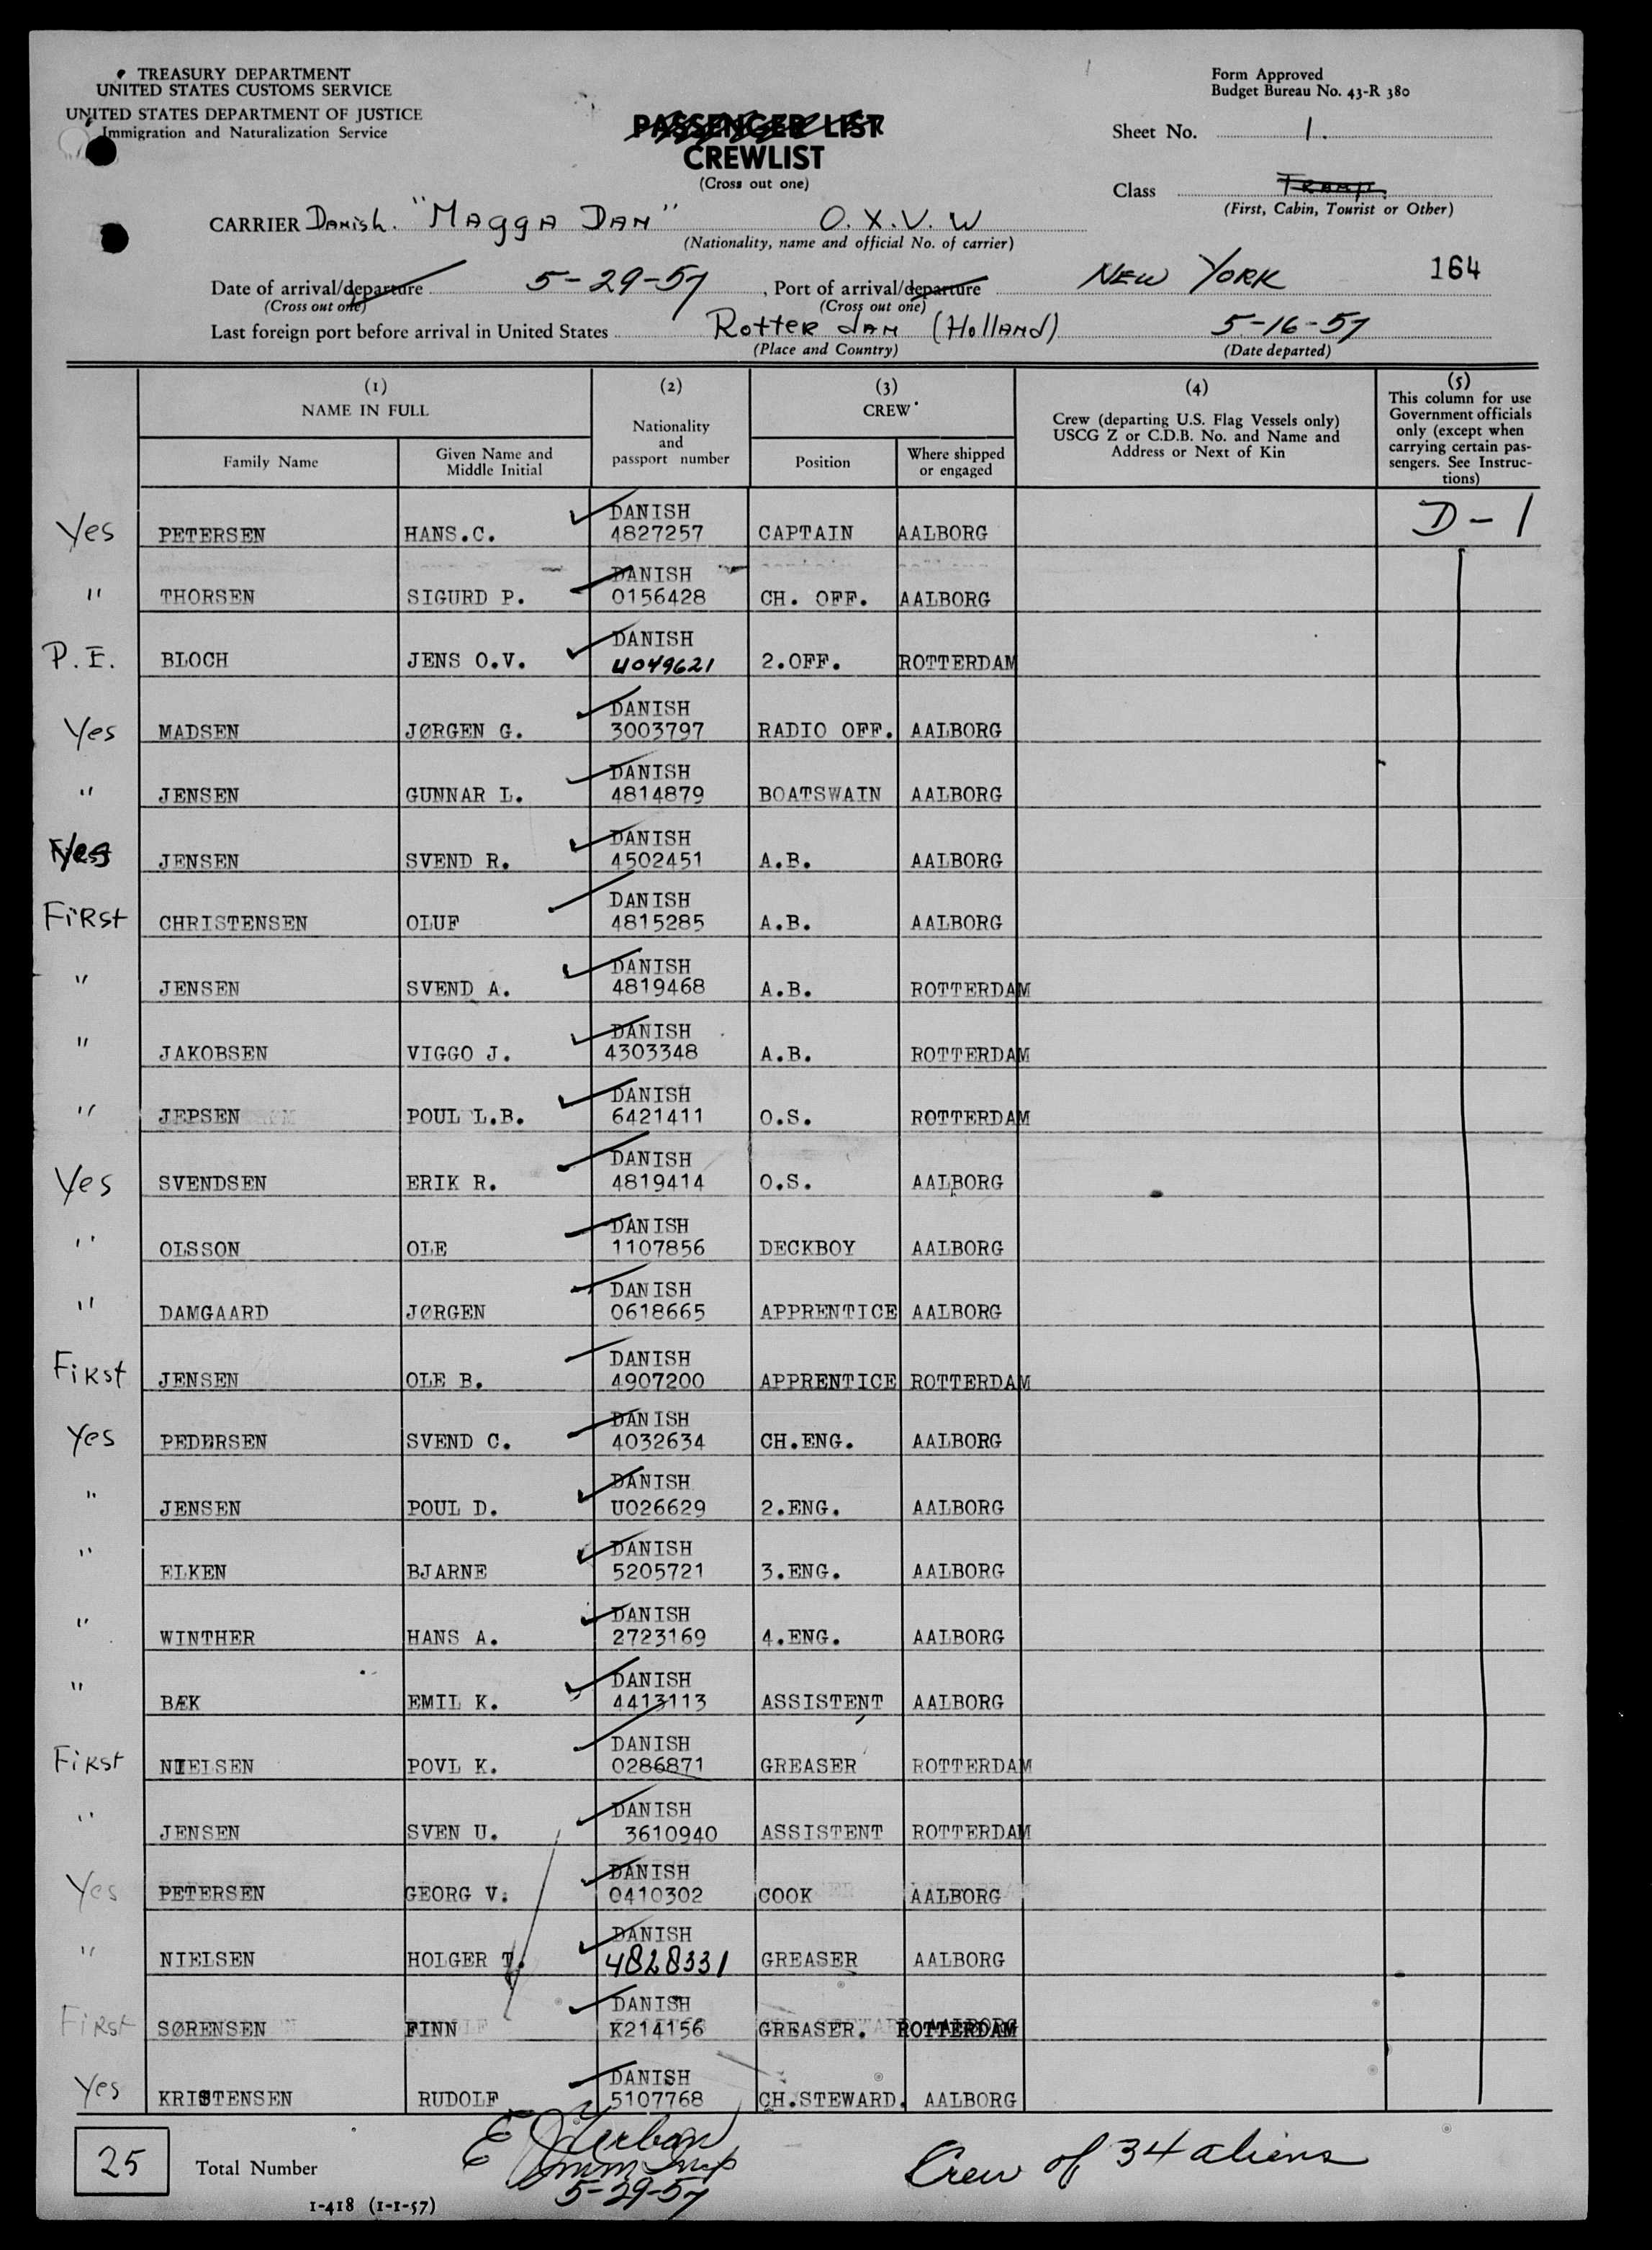 TREASURY DEPARTMENT
UNITED STATES CUSTOMS SERVICE
UNITED STATES DEPARTMENT OF JUSTICE
Immigration and Naturalization Service
PASSENGER LIST
CREWLIST
(Cross out one)
Form Approved
Budget Bureau No. 43-R 380
Sheet No. 1.
Class Tramp.
(First, Cabin, Tourist or Other)
CARRIER Danish. "MAGGA DAN" O.X.V.W
(Nationality, name and official No. of carrier)
Date of arrival/departure 5-29-57, Port of arrival/departure NEW YORK 164
(Cross out one) (Cross out one)
Last foreign port before arrival in United States Rotterdam (Holland) 5-16-57
(Place and Country) (Date departed)
(1) (2) (3) (4) (5)
NAME IN FULL
Family Name
Given Name and Middle Initial
Nationality and passport number
CREW
Position
Where shipped or engaged
Crew (departing U.S. Flag Vessels only)
USCG Z or C.D.B. No. and Name and
Address or Next of Kin
This column for use
Government officials
only (except when
carrying certain pas-
sengers. See Instruc-
tions)
DANISH
Yes PETERSEN HANS.C. 4827257 CAPTAIN AALBORG D-1
DANISH
" THORSEN SIGURD P. 0156428 CH. OFF. AALBORG
DANISH
P.I. BLOCH JENS O.V. U049621 2.OFF. ROTTERDAM
DANISH
Yes MADSEN JØRGEN G. 3003797 RADIO OFF. AALBORG
DANISH
" JENSEN GUNNAR L. 4814879 BOATSWAIN AALBORG
DANISH
Yes JENSEN SVEND R. 4502451 A.B. AALBORG
DANISH
First CHRISTENSEN OLUF 4815285 A.B. AALBORG
DANISH
" JENSEN SVEND A. 4819468 A.B. ROTTERDAM
DANISH
" JAKOBSEN VIGGO J. 4303348 A.B. ROTTERDAM
DANISH
" JEPSEN POUL L.B. 6421411 O.S. ROTTERDAM
DANISH
Yes SVENDSEN ERIK R. 4819414 O.S. AALBORG
DANISH
" OLSSON OLE 1107856 DECKBOY AALBORG
DANISH
" DAMGAARD JØRGEN 0618665 APPRENTICE AALBORG
DANISH
First JENSEN OLE B. 4907200 APPRENTICE ROTTERDAM
DANISH
Yes PEDERSEN SVEND C. 4032634 CH.ENG. AALBORG
DANISH
" JENSEN POUL D. U026629 2.ENG. AALBORG
DANISH
" ELKEN BJARNE 5205721 3.ENG. AALBORG
DANISH
" WINTHER HANS A. 2723169 4.ENG. AALBORG
DANISH
" BÆK EMIL K. 4413113 ASSISTENT AALBORG
DANISH
First NIELSEN POVL K. 0286871 GREASER ROTTERDAM
DANISH
" JENSEN SVEN U. 3610940 ASSISTENT ROTTERDAM
DANISH
Yes PETERSEN GEORG V. 0410302 COOK AALBORG
DANISH
" NIELSEN HOLGER T. 4828331 GREASER AALBORG
DANISH
First SØRENSEN FINN K214156 GREASER. ROTTERDAM
DANISH
Yes KRISTENSEN RUDOLF 5107768 CH.STEWARD. AALBORG
25 Total Number
Imm Insp
5-29-57
Crew of 34 aliens
I-418 (1-1-57)